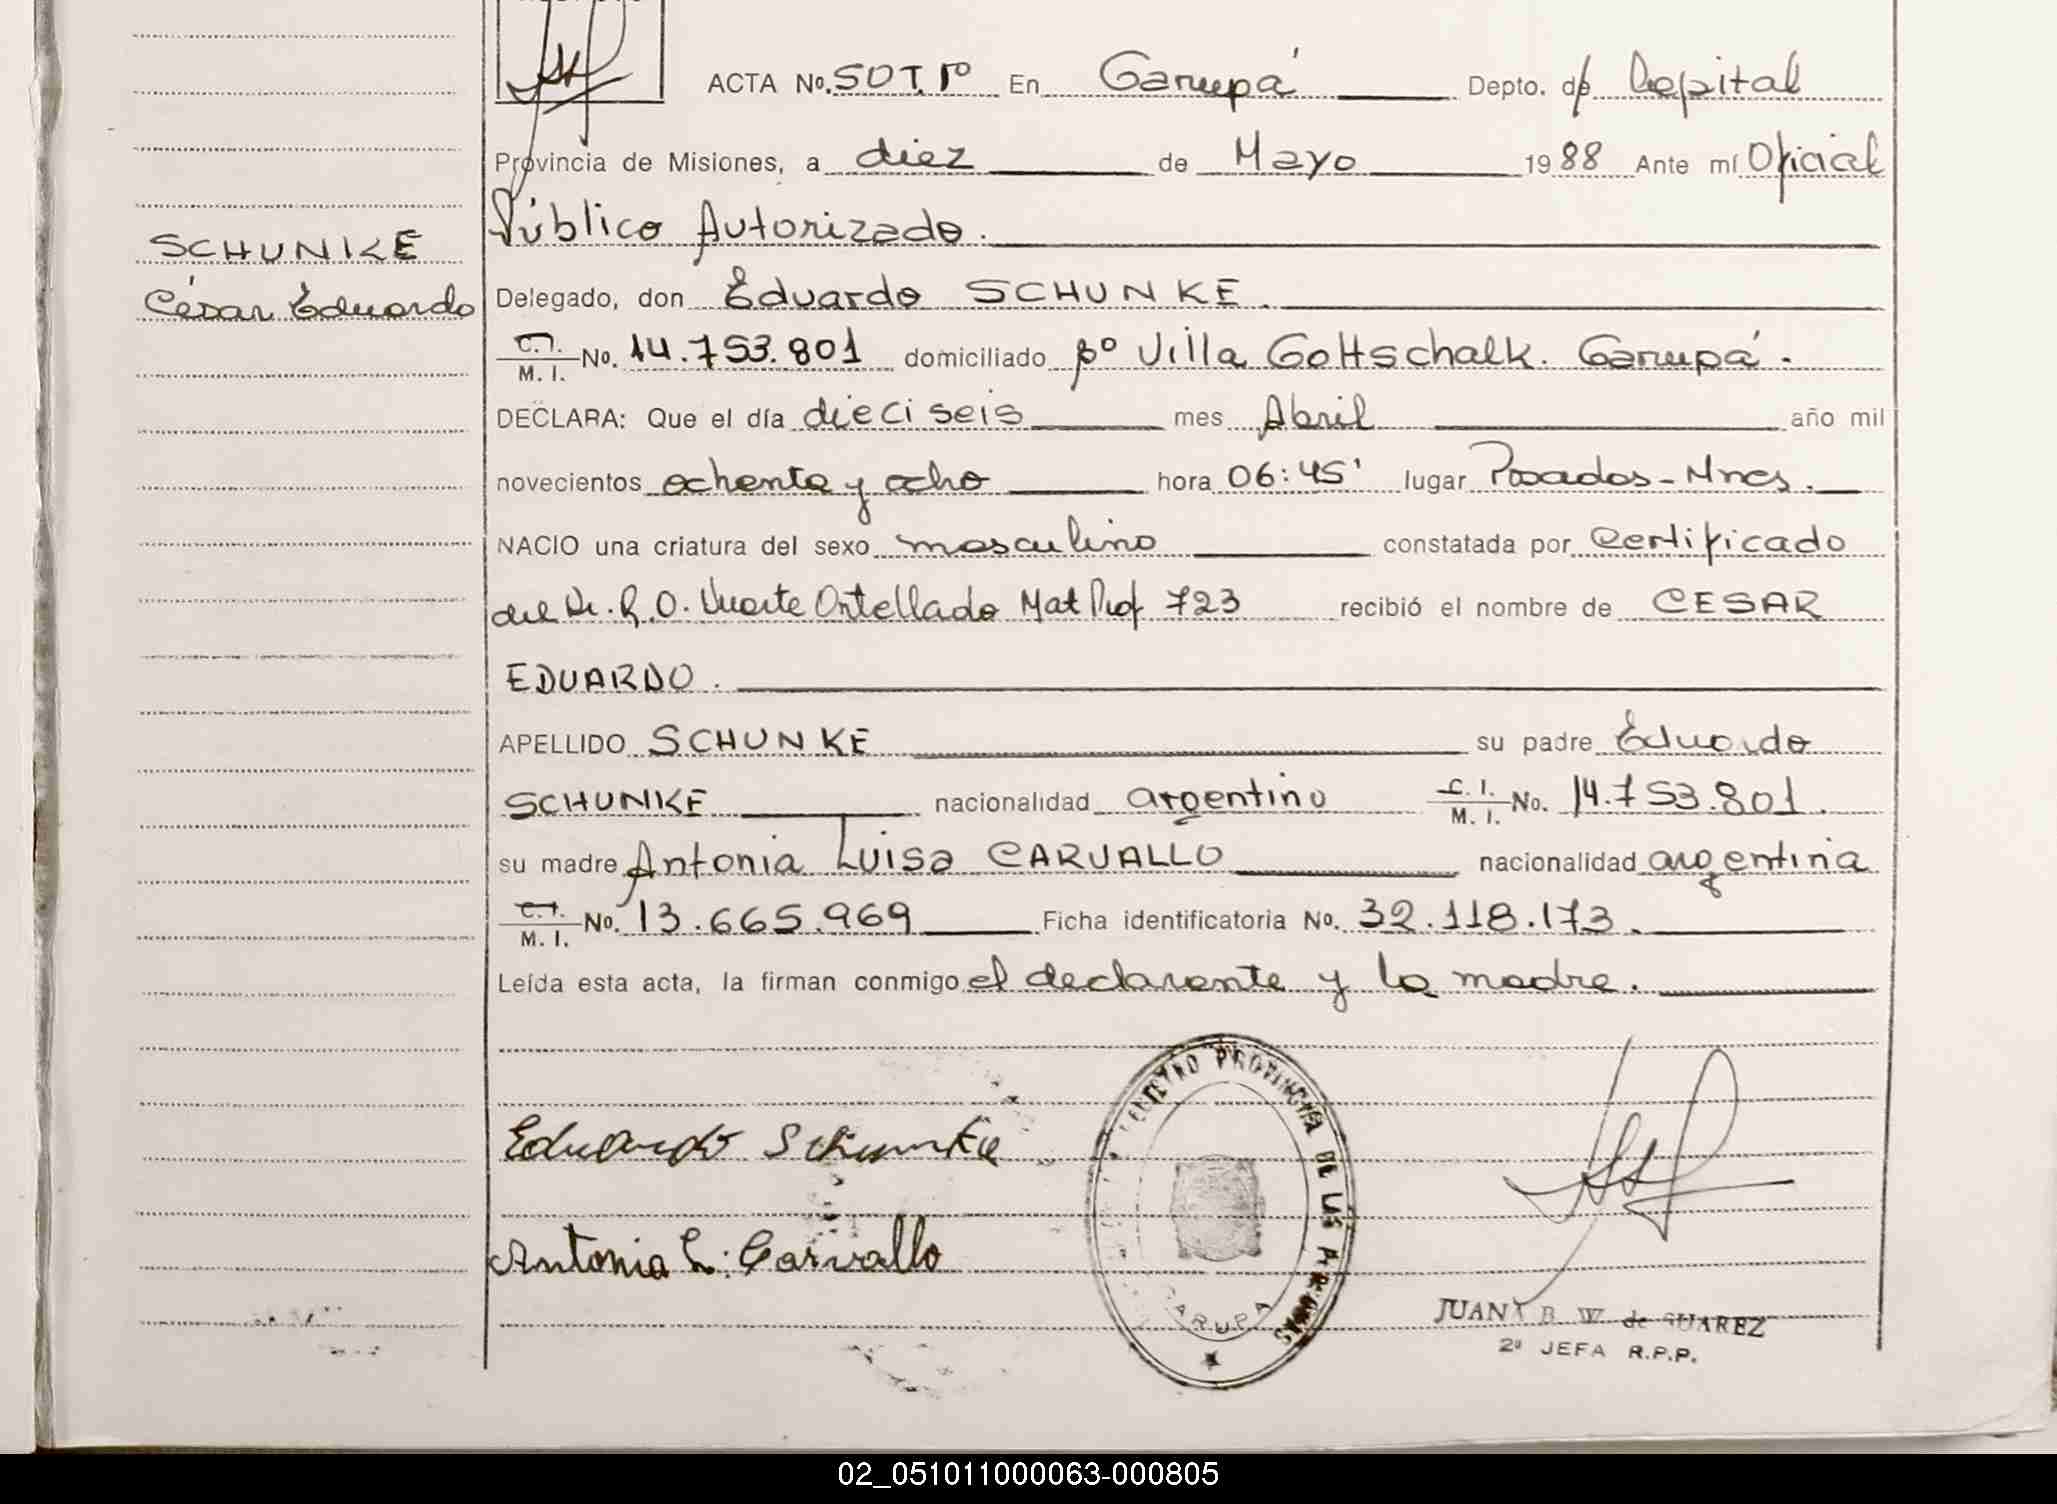 ACTA No. 50T.1º En Garupá Depto. de Capital
Provincia de Misiones, a diez de Mayo 1988 Ante mí Oficial
Público Autorizado.
SCHUNKE
César Eduardo
Delegado, don Eduardo SCHUNKE.
C.I. M. I. No. 14.753.801 domiciliado Bº Villa Gottschalk. Garupá.
DECLARA: Que el día dieciseis mes Abril año mil
novecientos ochenta y ocho hora 06:45' lugar Posadas-Mnes.
NACIO una criatura del sexo masculino constatada por Certificado
del Dr. R.O. Duarte Ortellado Mat Prof 723 recibió el nombre de CESAR
EDUARDO.
APELLIDO SCHUNKE su padre Eduardo
SCHUNKE nacionalidad argentino C. I. M. I. No. 14.753.801.
su madre Antonia Luisa CARVALLO nacionalidad argentina
C.I. M. I. No. 13.665.969 Ficha identificatoria No. 32.118.173.
Leída esta acta, la firman conmigo el declarante y la madre.
Eduardo Schunke
Antonia L. Carvallo
REGISTRO PROVINCIAL DE LAS PERSONAS
GARUPA
JUANA B. W. de SUAREZ
2ª JEFA R.P.P.
02_051011000063-000805